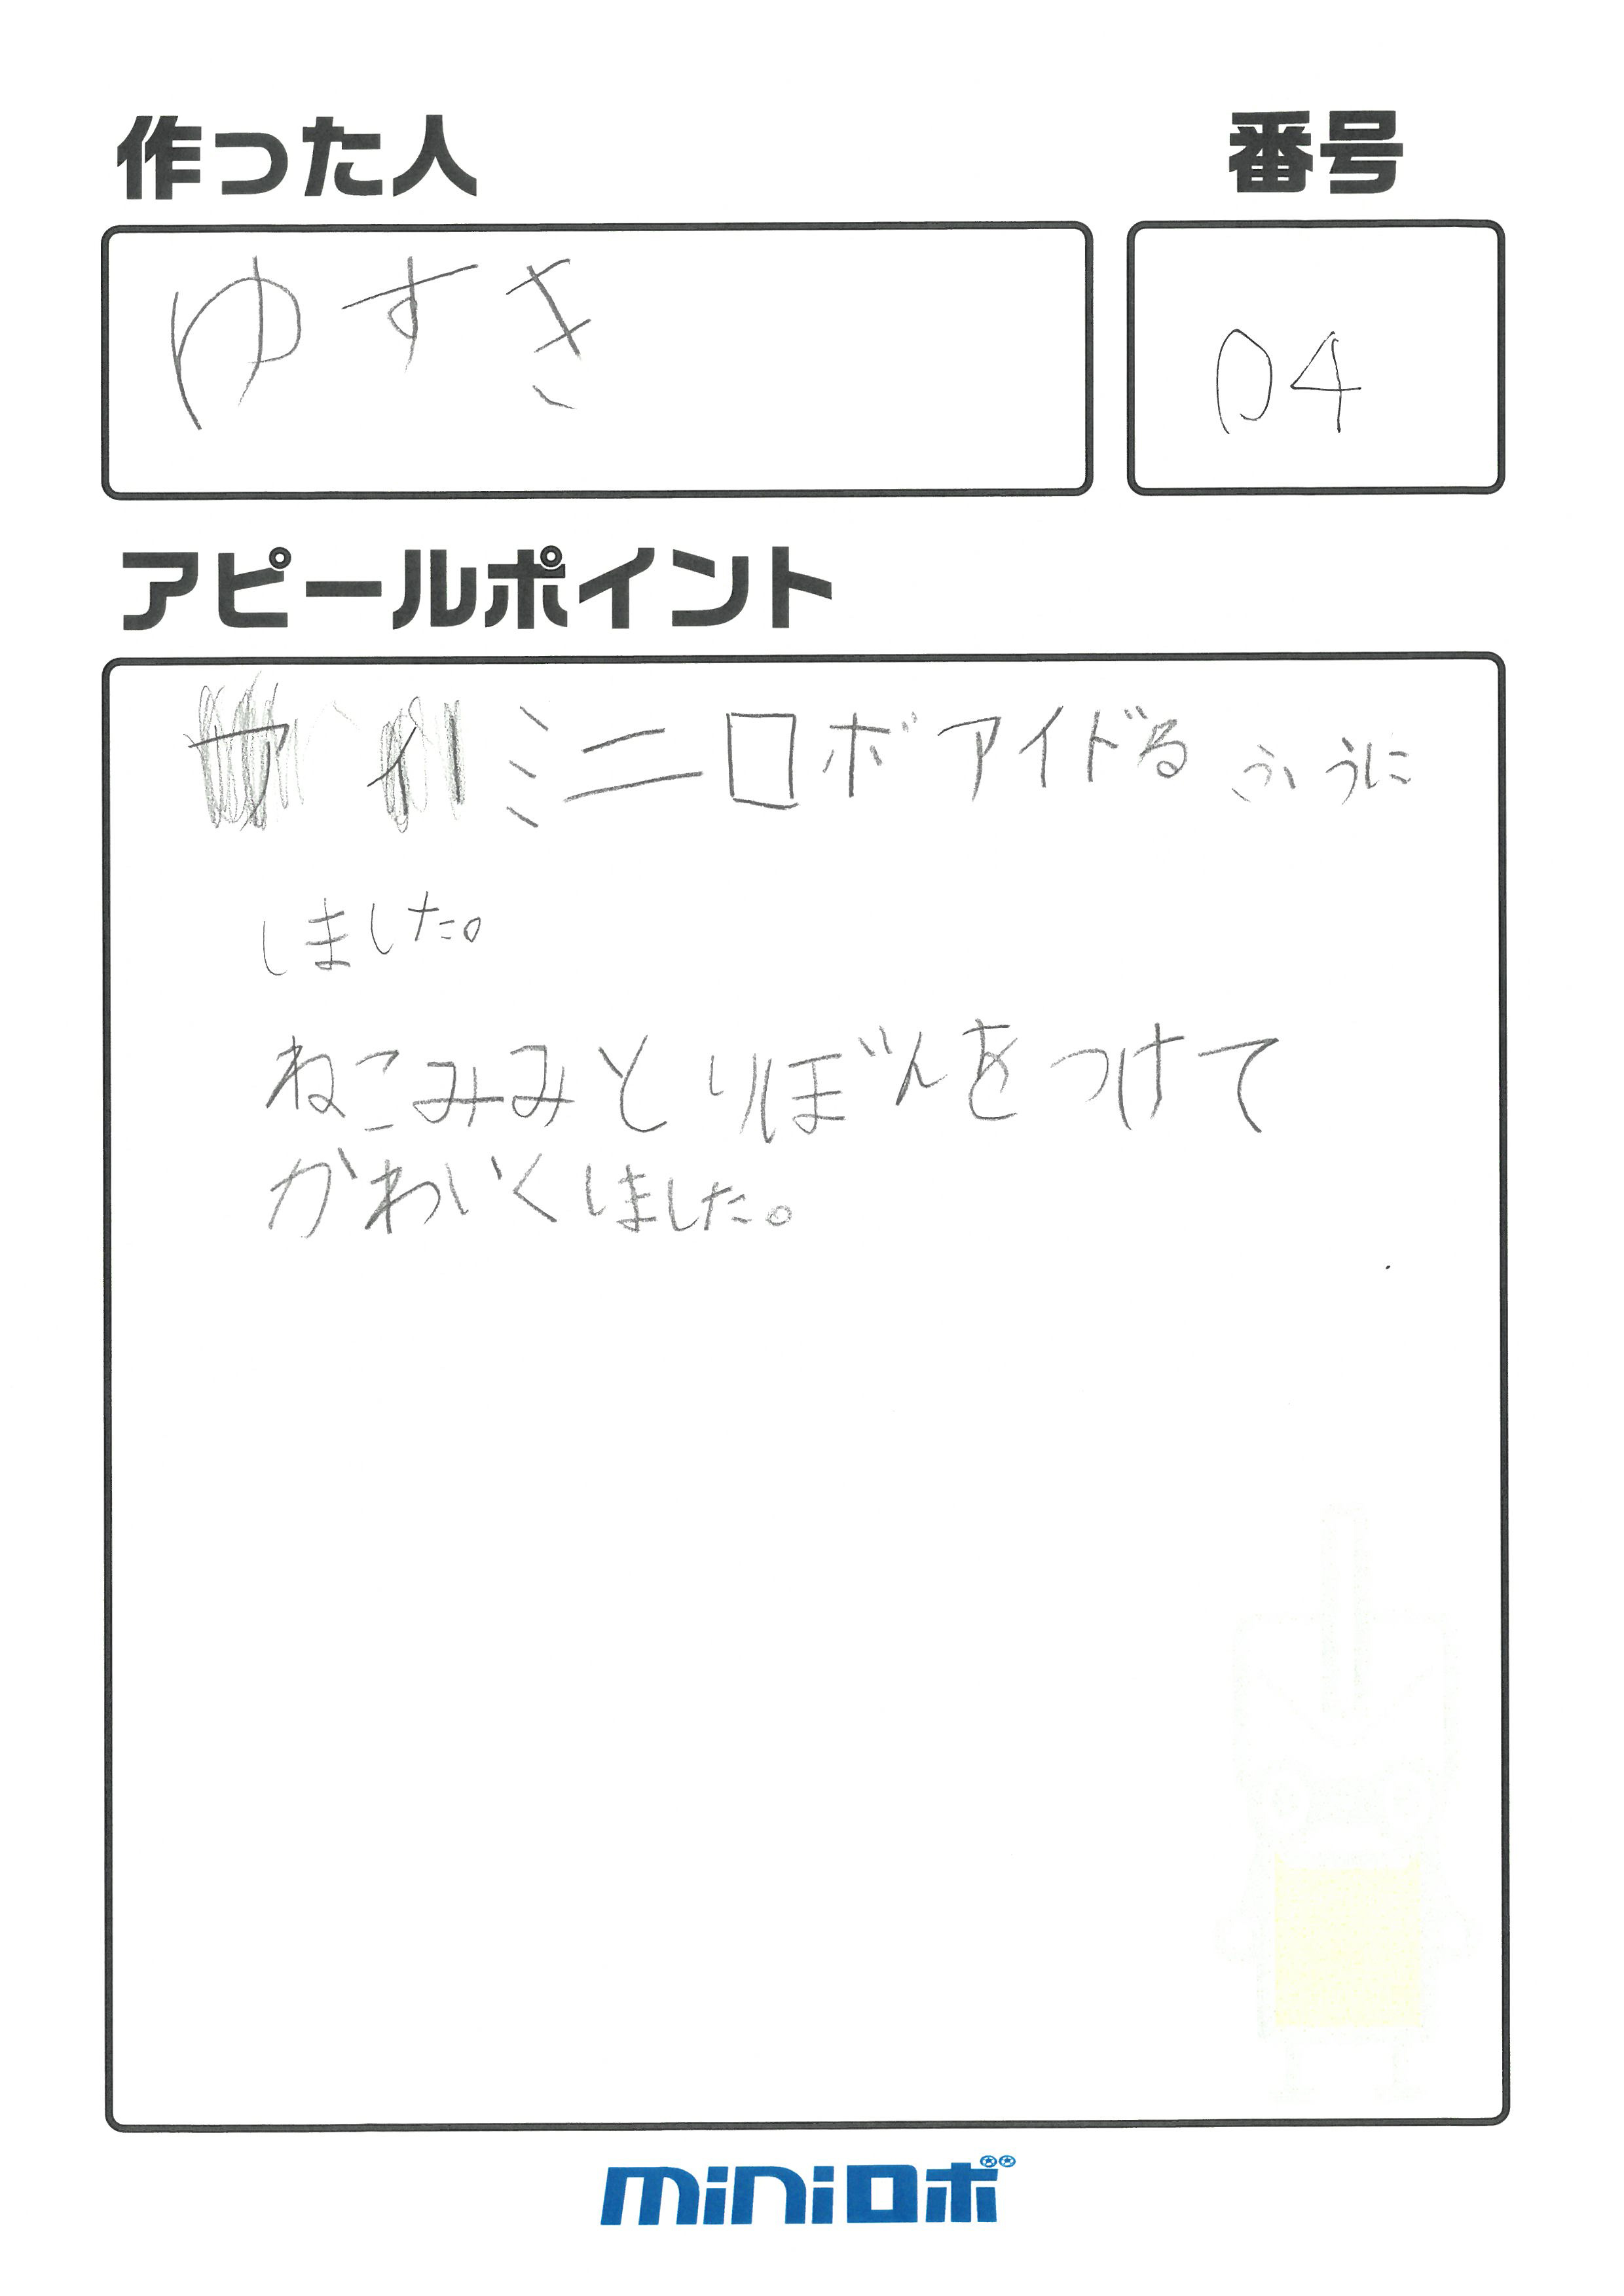 作った人
番号
ゆずき
04
アピールポイント
ミニロボアイドるふうに
しました。
ねこみみとりぼんをつけて
かわいくしました。
miniロボ